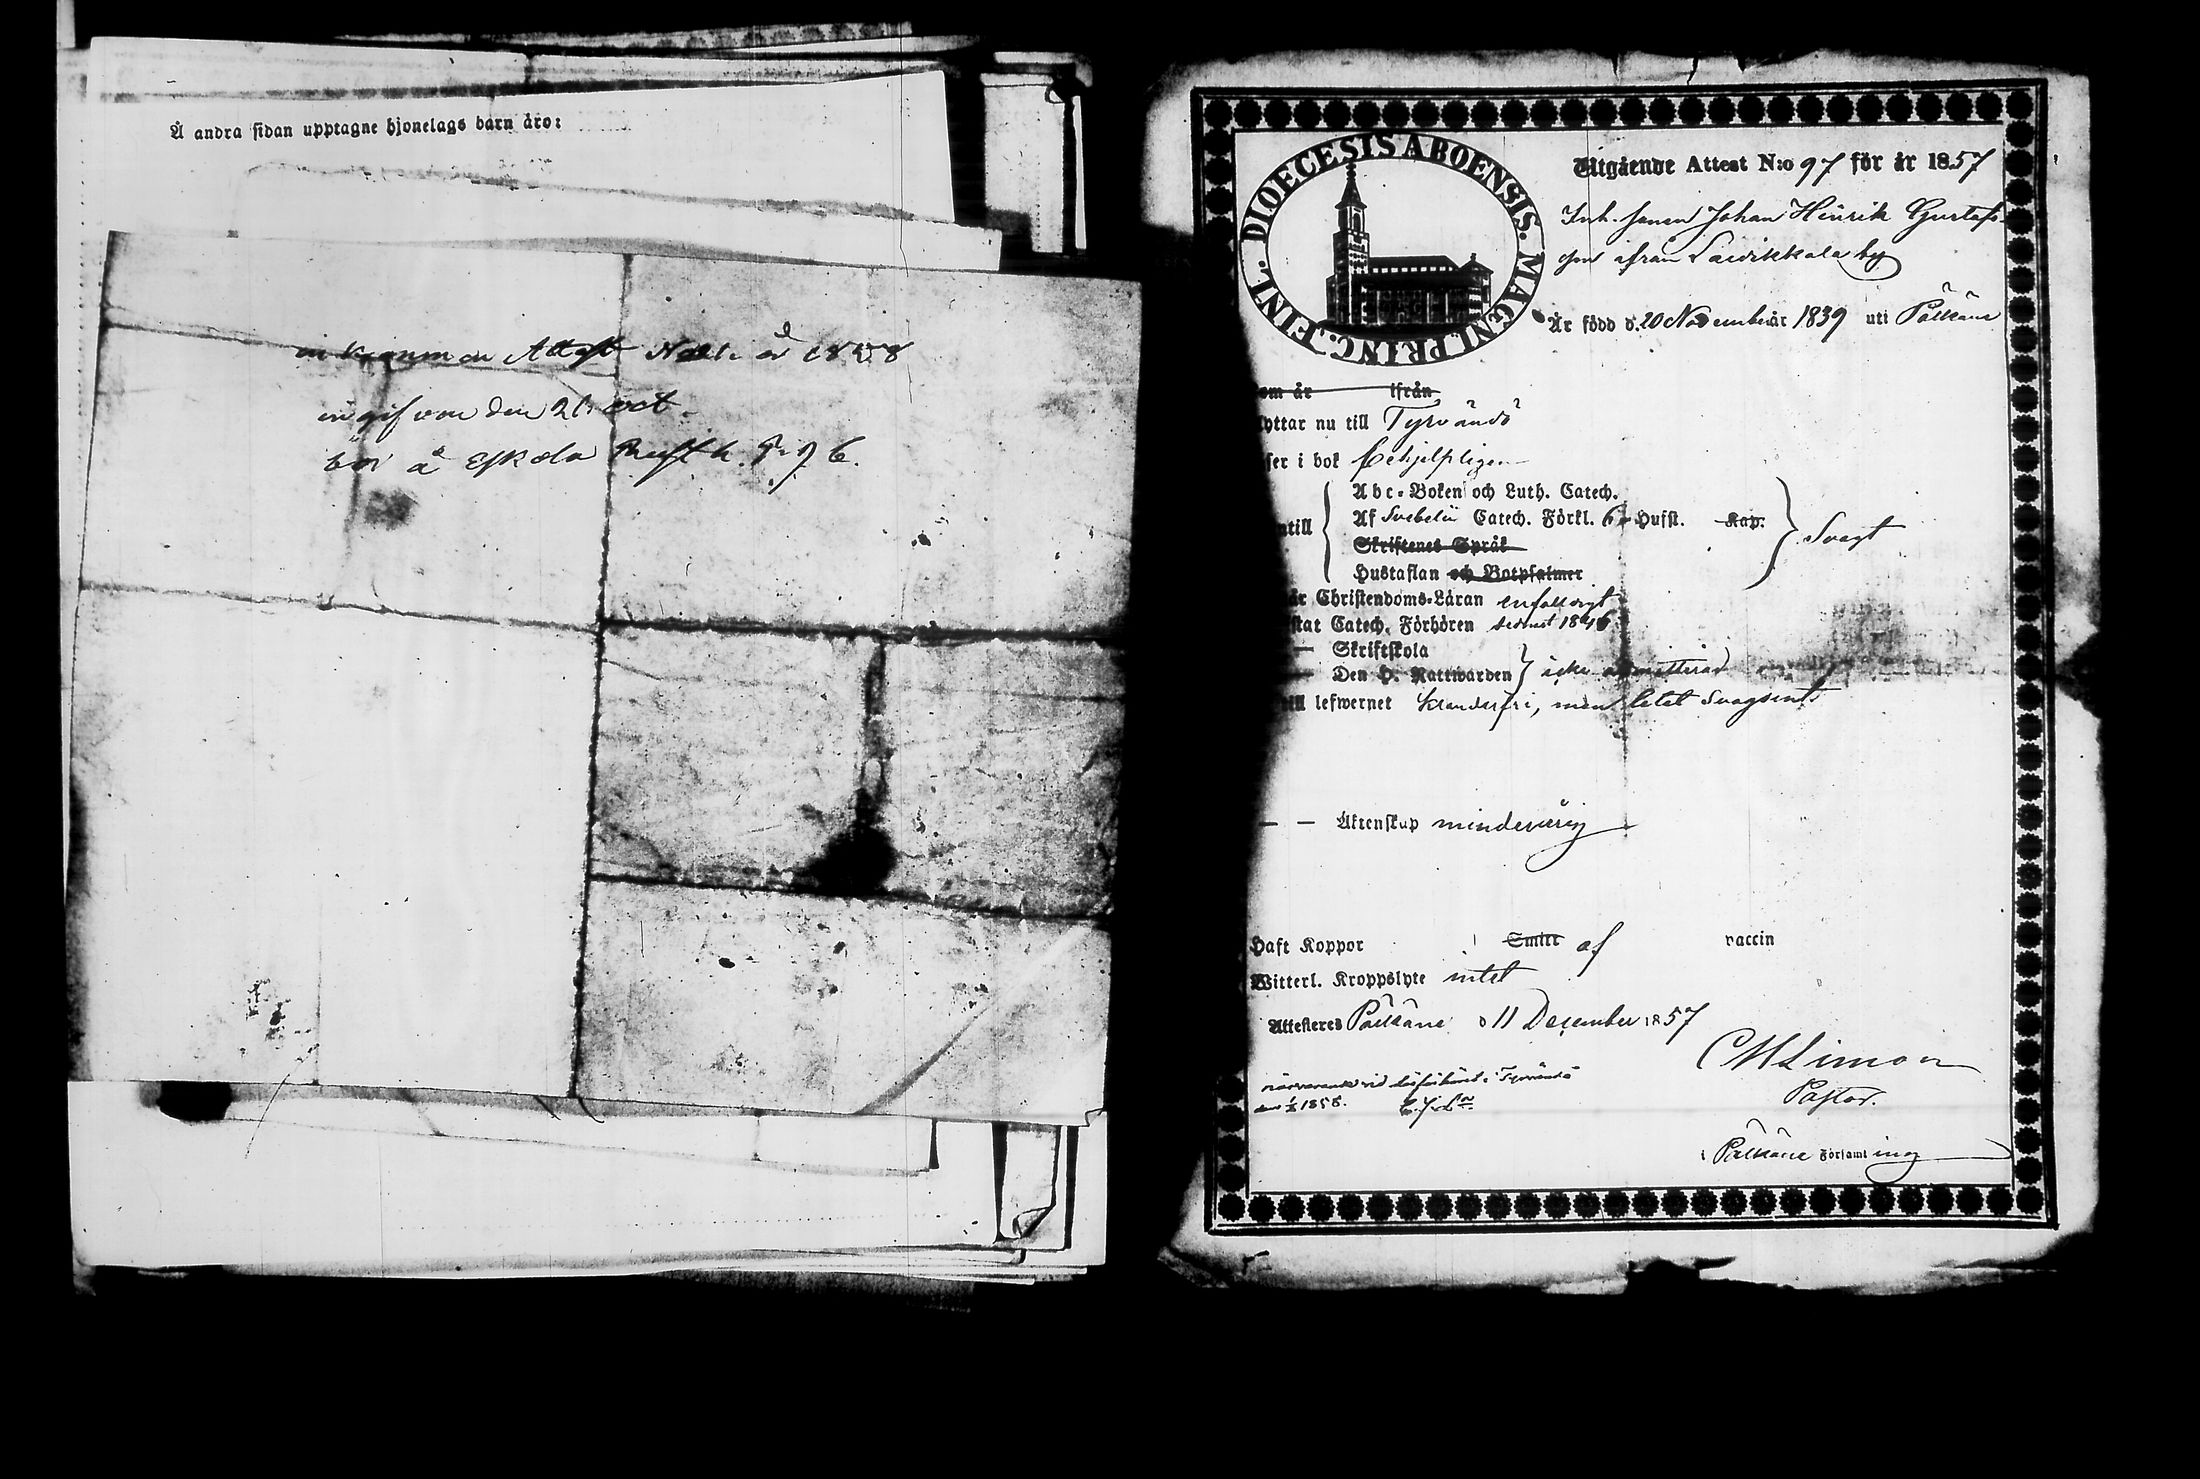 Å andra sidan upptagne hjonelags barn äro:
inkommen Attest år 1858
ingifven den 26 oct.
bör å Eskola
DIOECESIS ABOENSIS. MAGNI. PRINC. FINL.
Utgående Attest N:o 97 för år 1857
Inh. sonen Johan Hinrik Gustafs-
son ifrån Laivikkala by
Är född d. 20 November år 1839 uti Pälkäne
om är ifrån
yttar nu till Tyrvändö
ser i bok behjelpligen
Abc-Boken och Luth. Catech.
ntill Af Svebelii Catech. Förkl. 6 Hufst. Kap. Svagt
Skriftenes Språk
Hustaflan och Botpsalmer
är Christendoms-Läran enfalldigt
stat Catech. Förhören sednast 1846
— Skriftskola
— Den H. Nattwarden icke admitterad
till lefwernet klanderfri, men letet svagsint
— — Äktenskap minderårig
Haft Koppor Smitt af vaccin
Witterl. Kroppslyte intet
Attesteres Pälkäne d 11 December 1857
CHLimon
Pastor.
närvarande vid läsförhöret i Tyrvändö
1858.
i Pälkäne Församling